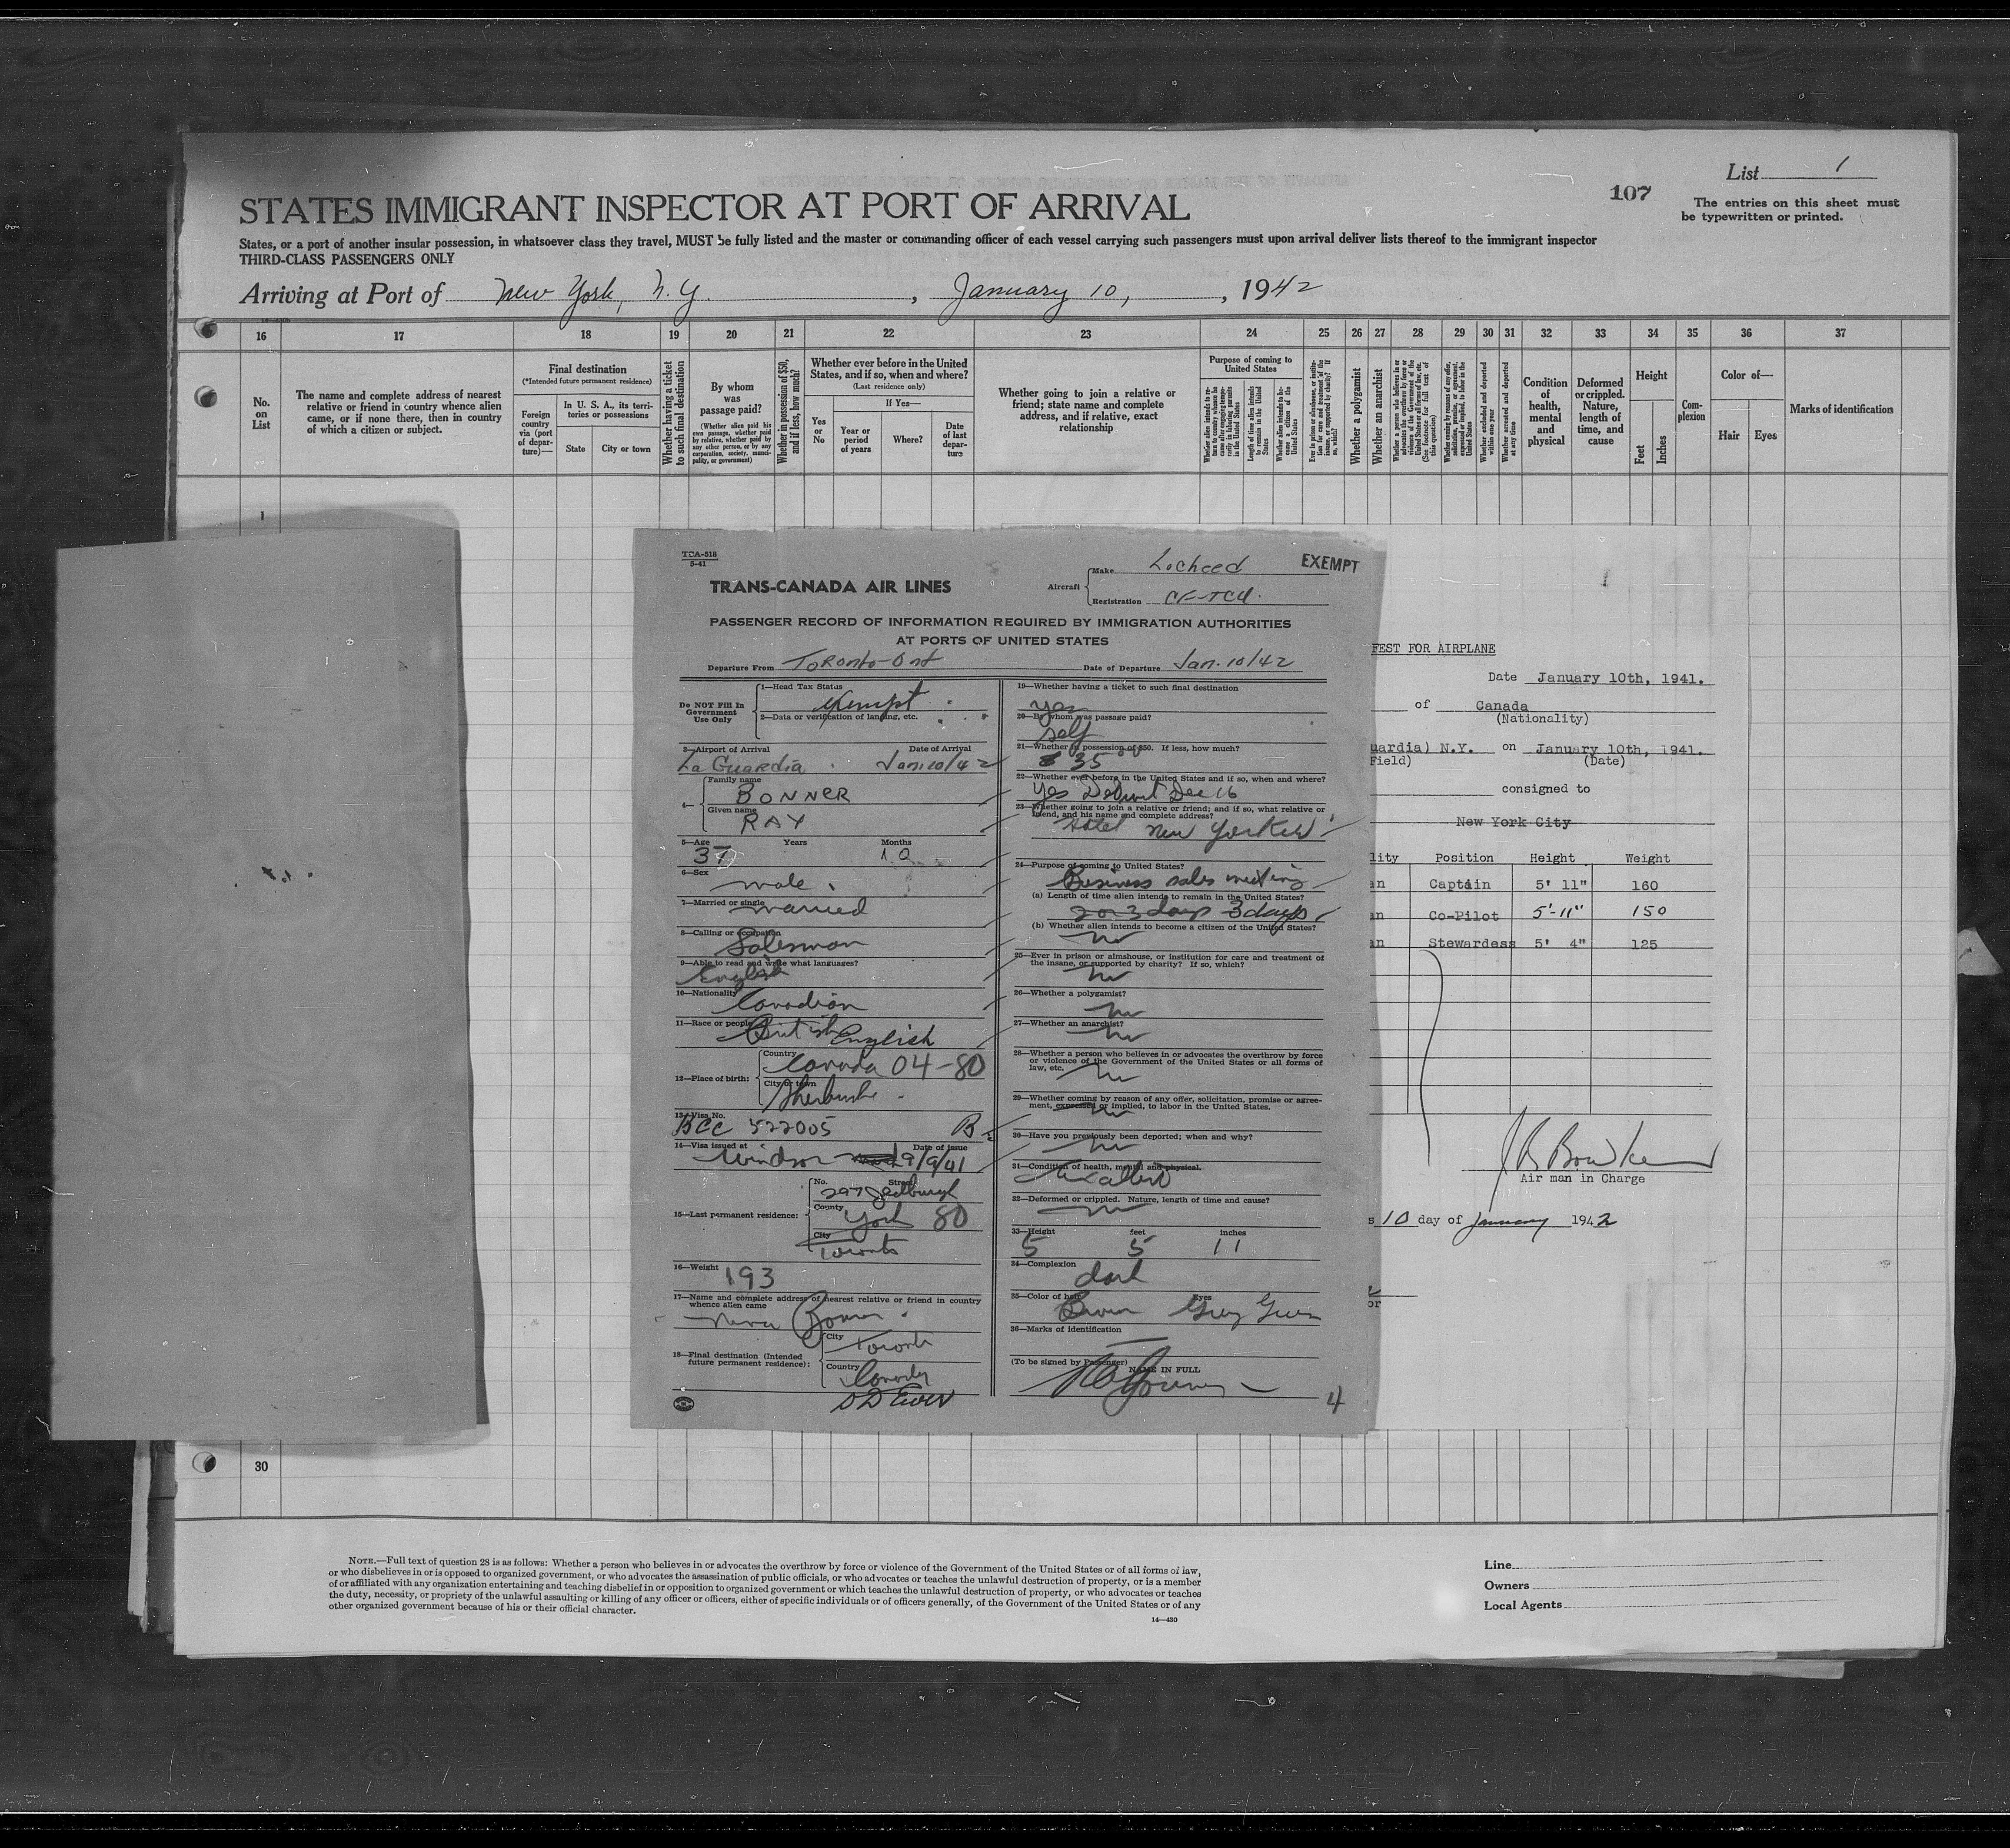 List 1
107
The entries on this sheet must
be typewritten or printed.
STATES IMMIGRANT INSPECTOR AT PORT OF ARRIVAL
States, or a port of another insular possession, in whatsoever class they travel, MUST be fully listed and the master or commanding officer of each vessel carrying such passengers must upon arrival deliver lists thereof to the immigrant inspector
THIRD-CLASS PASSENGERS ONLY
Arriving at Port of New York, N.Y. , January 10, , 1942
16 17 18 19 20 21 22 23 24 25 26 27 28 29 30 31 32 33 34 35 36 37
No.
on
List
The name and complete address of nearest
relative or friend in country whence alien
came, or if none there, then in country
of which a citizen or subject.
Final destination
(*Intended future permanent residence)
Foreign
country
via (port
of depar-
ture)—
In U. S. A., its terri-
tories or possessions
State
City or town
Whether having a ticket
to such final destination
By whom
was
passage paid?
(Whether alien paid his
own passage, whether paid
by relative, whether paid by
any other person, or by any
corporation, society, munici-
pality, or government)
Whether in possession of $50,
and if less, how much?
Whether ever before in the United
States, and if so, when and where?
(Last residence only)
Yes
or
No
If Yes—
Year or
period
of years
Where?
Date
of last
depar-
ture
Whether going to join a relative or
friend; state name and complete
address, and if relative, exact
relationship
Purpose of coming to
United States
Whether alien intends to re-
turn to country whence he
came after engaging tempo-
rarily in laboring pursuits
in the United States
Length of time alien intends
to remain in the United
States
Whether alien intends to be-
come a citizen of the
United States
Ever in prison or almshouse, or institu-
tion for care and treatment of the
insane, or supported by charity? If
so, which?
Whether a polygamist
Whether an anarchist
Whether a person who believes in or
advocates the overthrow by force or
violence of the Government of the
United States or all forms of law, etc.
(See footnote for full text of
this question)
Whether coming by reason of any offer,
solicitation, promise, or agreement,
expressed or implied, to labor in the
United States
Whether excluded and deported
within one year
Whether arrested and deported
at any time
Condition
of
health,
mental
and
physical
Deformed
or crippled.
Nature,
length of
time, and
cause
Height
Feet
Inches
Com-
plexion
Color of—
Hair
Eyes
Marks of identification
1
TCA-518
5-41
TRANS-CANADA AIR LINES
Aircraft
Make Locheed
Registration CF-TCU.
EXEMPT
PASSENGER RECORD OF INFORMATION REQUIRED BY IMMIGRATION AUTHORITIES
AT PORTS OF UNITED STATES
Departure From Toronto-Ont Date of Departure Jan. 10/42
Do NOT Fill In
Government
Use Only
1—Head Tax Status
exempt
2—Data or verification of landing, etc.
3—Airport of Arrival Date of Arrival
La Guardia Jan 10/42
4—
Family name
BONNER
Given name
RAY
5—Age Years Months
37 10
6—Sex
male
7—Married or single
married
8—Calling or occupation
Salesman
9—Able to read and write what languages?
English
10—Nationality
Canadian
11—Race or people
British English
12—Place of birth:
Country
Canada 04-80
City or town
13—Visa No.
BCC 522005 B
14—Visa issued at Date of issue
Windsor 9/9/41
15—Last permanent residence:
No. Street
297 Jedburgh
County
York 80
City
Toronto
16—Weight
193
17—Name and complete address of nearest relative or friend in country
whence alien came
18—Final destination (Intended
future permanent residence):
City
Toronto
Country
Canada
19—Whether having a ticket to such final destination
yes
20—By whom was passage paid?
self
21—Whether in possession of $50. If less, how much?
$ 35 00
22—Whether ever before in the United States and if so, when and where?
yes Detroit Dec 16
23—Whether going to join a relative or friend; and if so, what relative or
friend, and his name and complete address?
Hotel New Yorker
24—Purpose of coming to United States?
Business sales meeting
(a) Length of time alien intends to remain in the United States?
2 or 3 days 3 days
(b) Whether alien intends to become a citizen of the United States?
no
25—Ever in prison or almshouse, or institution for care and treatment of
the insane, or supported by charity? If so, which?
no
26—Whether a polygamist?
no
27—Whether an anarchist?
no
28—Whether a person who believes in or advocates the overthrow by force
or violence of the Government of the United States or all forms of
law, etc.
no
29—Whether coming by reason of any offer, solicitation, promise or agree-
ment, expressed or implied, to labor in the United States.
no
30—Have you previously been deported; when and why?
no
31—Condition of health, mental and physical.
Excellent
32—Deformed or crippled. Nature, length of time and cause?
no
33—Height feet inches
5 5 11
34—Complexion
dark
35—Color of hair Eyes
Brown Grey Green
36—Marks of identification
(To be signed by Passenger)
NAME IN FULL
4
FEST FOR AIRPLANE
Date January 10th, 1941.
of Canada
(Nationality)
uardia) N.Y. on January 10th, 1941.
Field) (Date)
consigned to
New York City
lity Position Height Weight
an Captain 5' 11" 160
an Co-Pilot 5'-11" 150
an Stewardess 5' 4" 125
Air man in Charge
s 10 day of January 1942
or
30
NOTE.—Full text of question 28 is as follows: Whether a person who believes in or advocates the overthrow by force or violence of the Government of the United States or of all forms of law,
or who disbelieves in or is opposed to organized government, or who advocates the assassination of public officials, or who advocates or teaches the unlawful destruction of property, or is a member
of or affiliated with any organization entertaining and teaching disbelief in or opposition to organized government or which teaches the unlawful destruction of property, or who advocates or teaches
the duty, necessity, or propriety of the unlawful assaulting or killing of any officer or officers, either of specific individuals or of officers generally, of the Government of the United States or of any
other organized government because of his or their official character.
14—430
Line
Owners
Local Agents